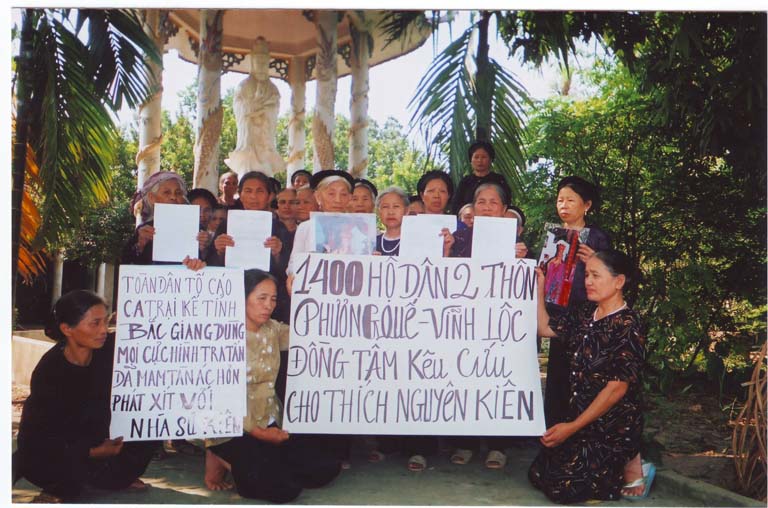 TOÀN DÂN TỐ CÁO
CA TRẠI KẾ TỈNH
BẮC GIANG DÙNG
MỌI CỰC HÌNH TRA TẤN
DÃ MAM TÀN ÁC HƠN
PHÁT XÍT VỚI
NHÀ SƯ KIÊN
1400 HỘ DÂN 2 THÔN
PHƯƠNG QUẾ-VĨNH LỘC
ĐỒNG TÂM KÊU CỨU
CHO THÍCH NGUYÊN KIÊN